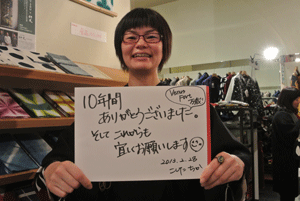 10年間
ありがとうございました。
そして これからも
宜しくお願いします
Venus
Fort
2010. 2. 28